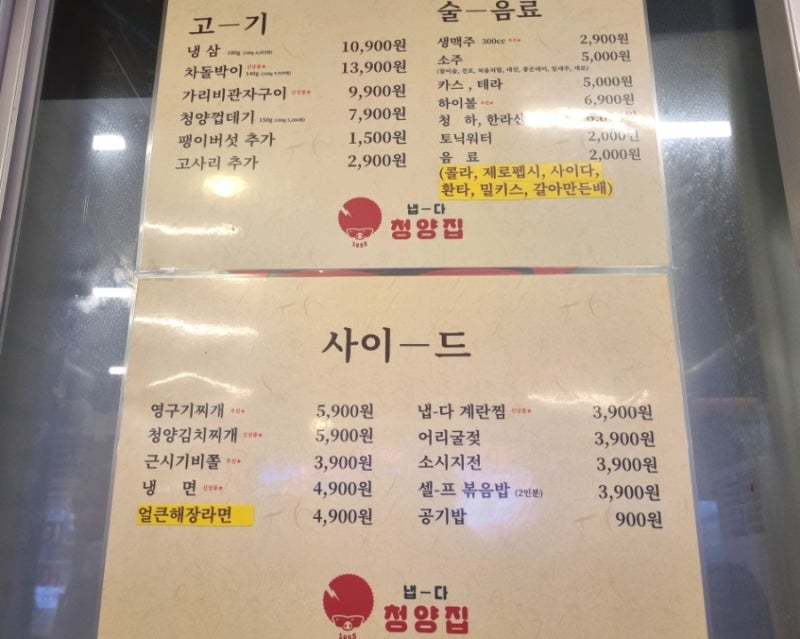 고ㅡ기
냉 삼 180g 10,900원
차돌박이 신상품★ 140g 13,900원
가리비관자구이 신상품★ 9,900원
청양껍데기 150g 7,900원
팽이버섯 추가 1,500원
고사리 추가 2,900원
술ㅡ음료
생맥주 300cc 추천★ 2,900원
소주 5,000원
카스 , 테라 5,000원
하이볼 추천★ 6,900원
청 하, 한라산
토닉워터 2,000원
음 료 2,000원
(콜라, 제로펩시, 사이다,
환타, 밀키스, 갈아만든배)
냅ㅡ다
청양집
사이ㅡ드
영구기찌개 추천★ 5,900원
청양김치찌개 신상품★ 5,900원
근시기비쫄 추천★ 3,900원
냉 면 신상품★ 4,900원
얼큰해장라면 4,900원
냅-다 계란찜 신상품★ 3,900원
어리굴젓 3,900원
소시지전 3,900원
셀-프 볶음밥 (2인분) 3,900원
공기밥 900원
냅ㅡ다
청양집